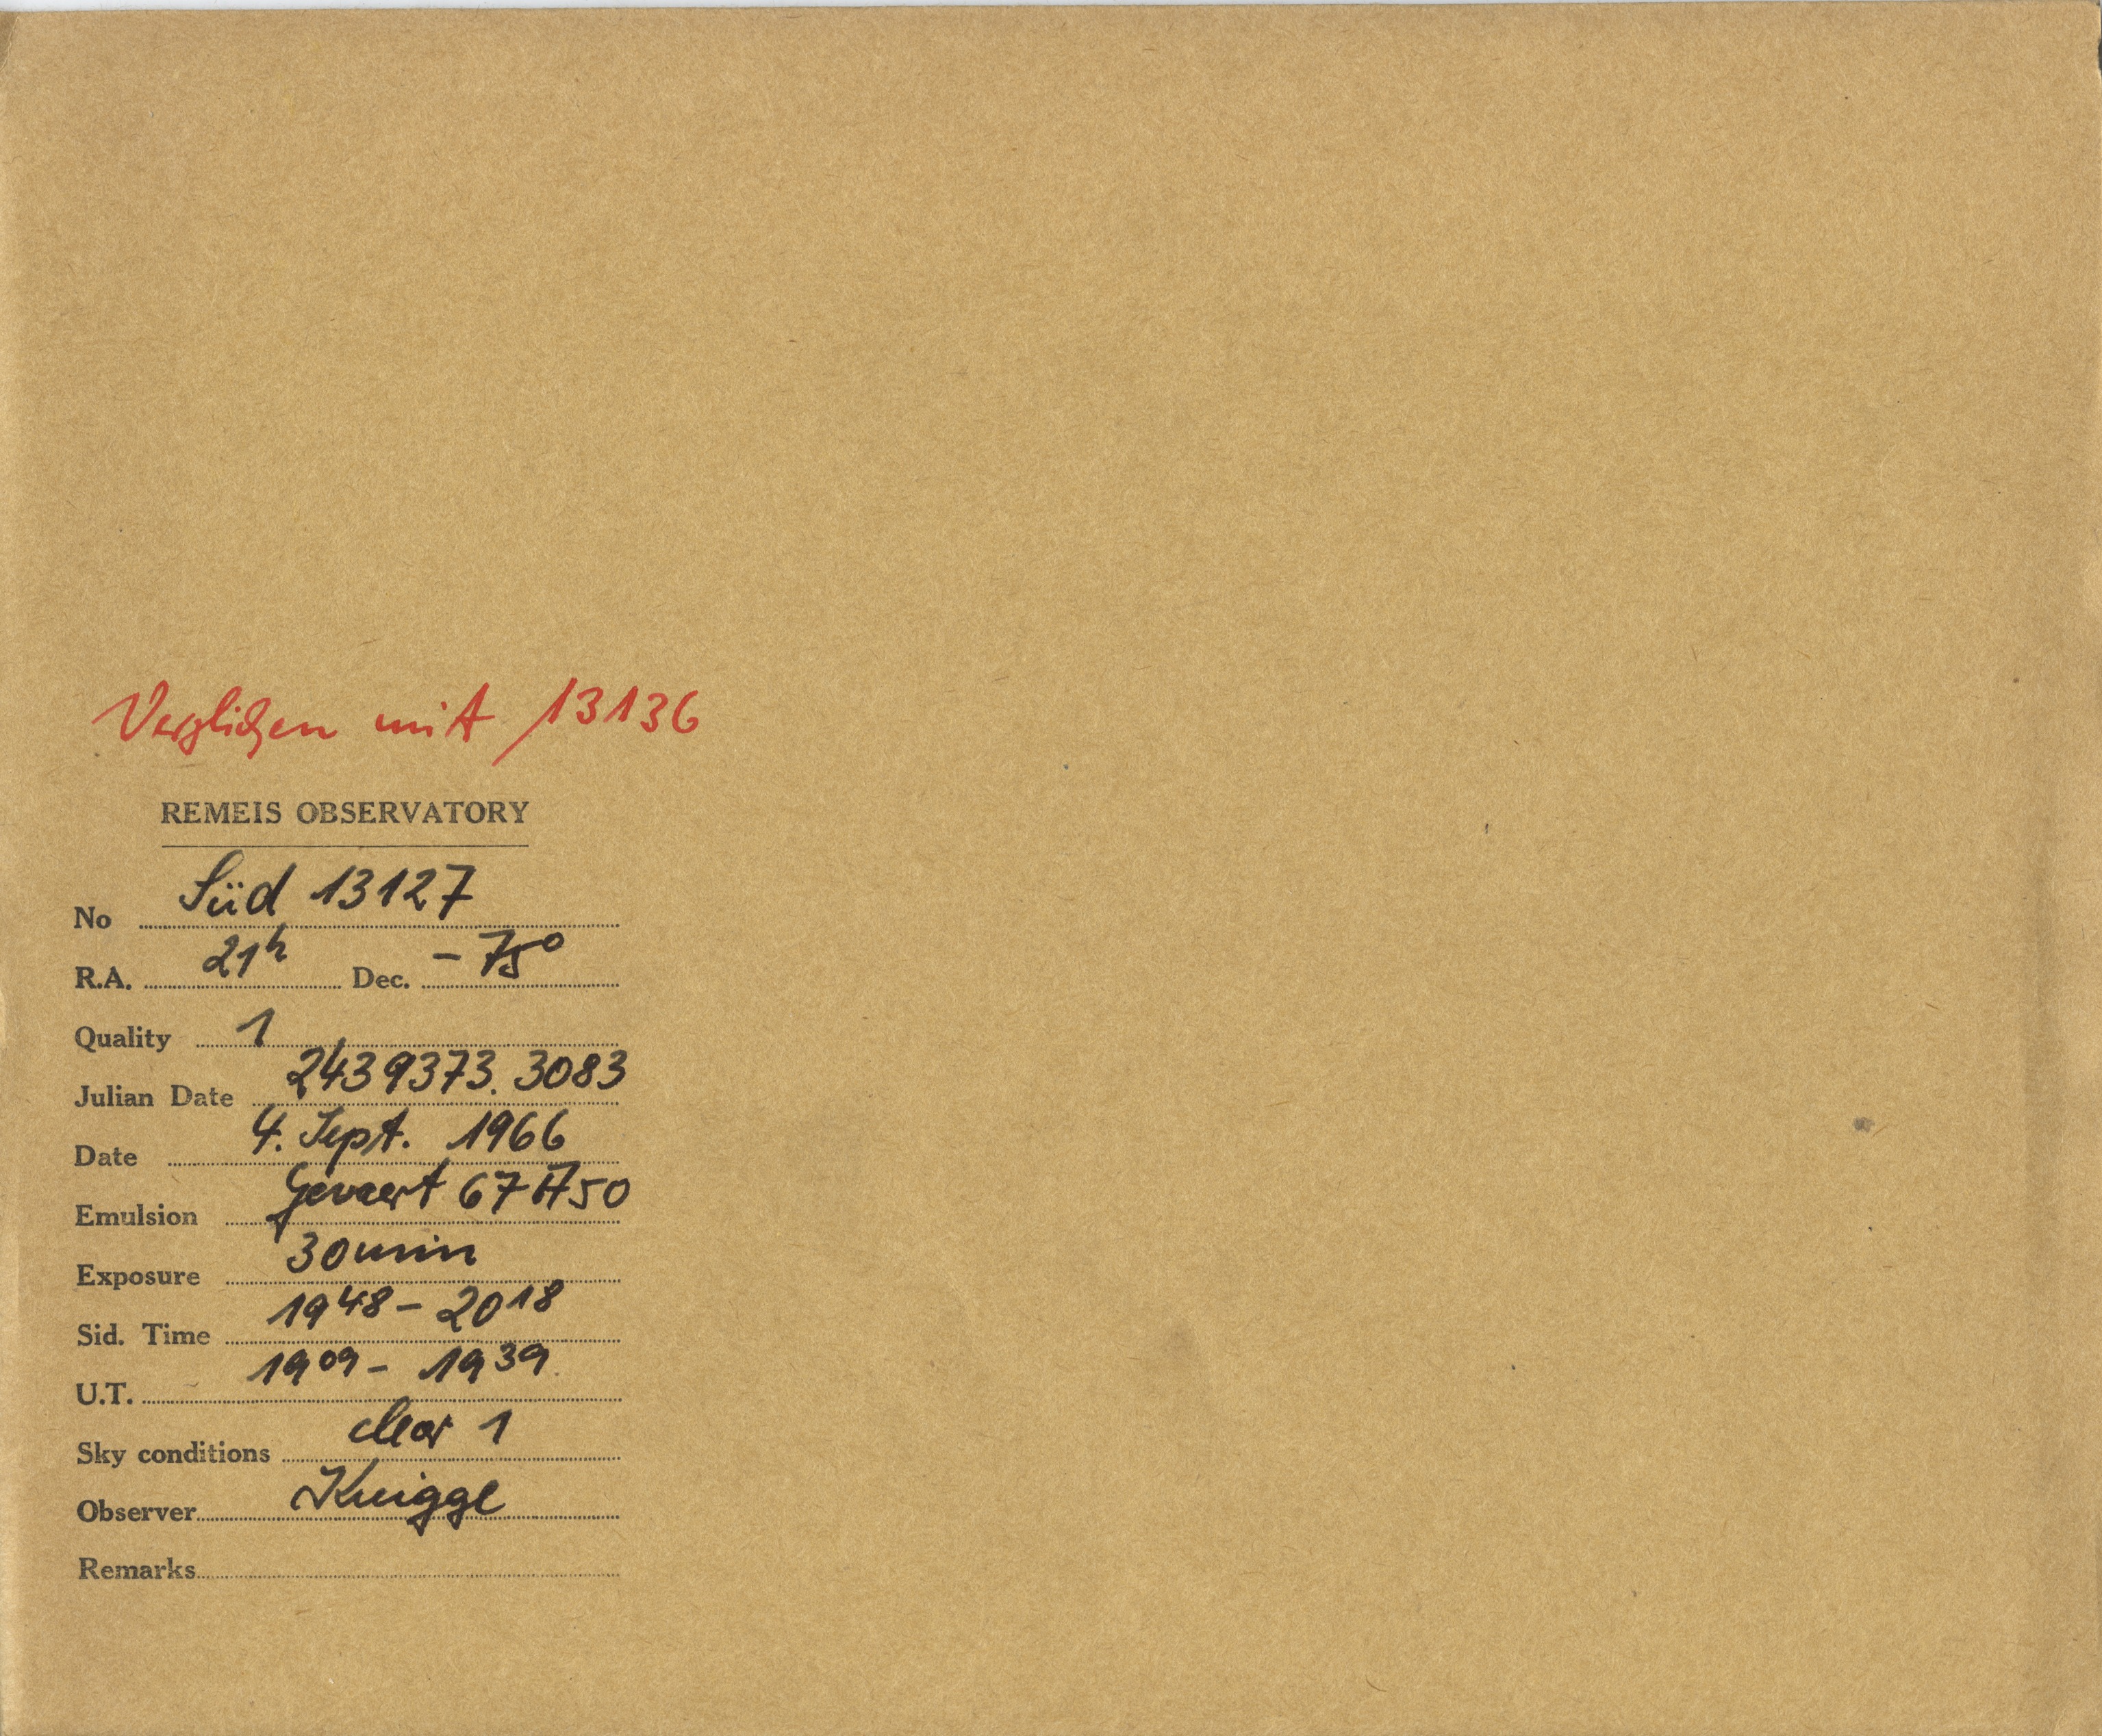 Verglichen mit 13136
REMEIS OBSERVATORY
No Süd 13127
R.A. 21h Dec. -75°
Quality 1
Julian Date 2439373.3083
Date 4. Sept. 1966
Emulsion Gevaert 67A50
Exposure 30min
Sid. Time 19 48 - 20 18
U.T. 19 09 - 19 39
Sky conditions clear 1
Observer Knigge
Remarks